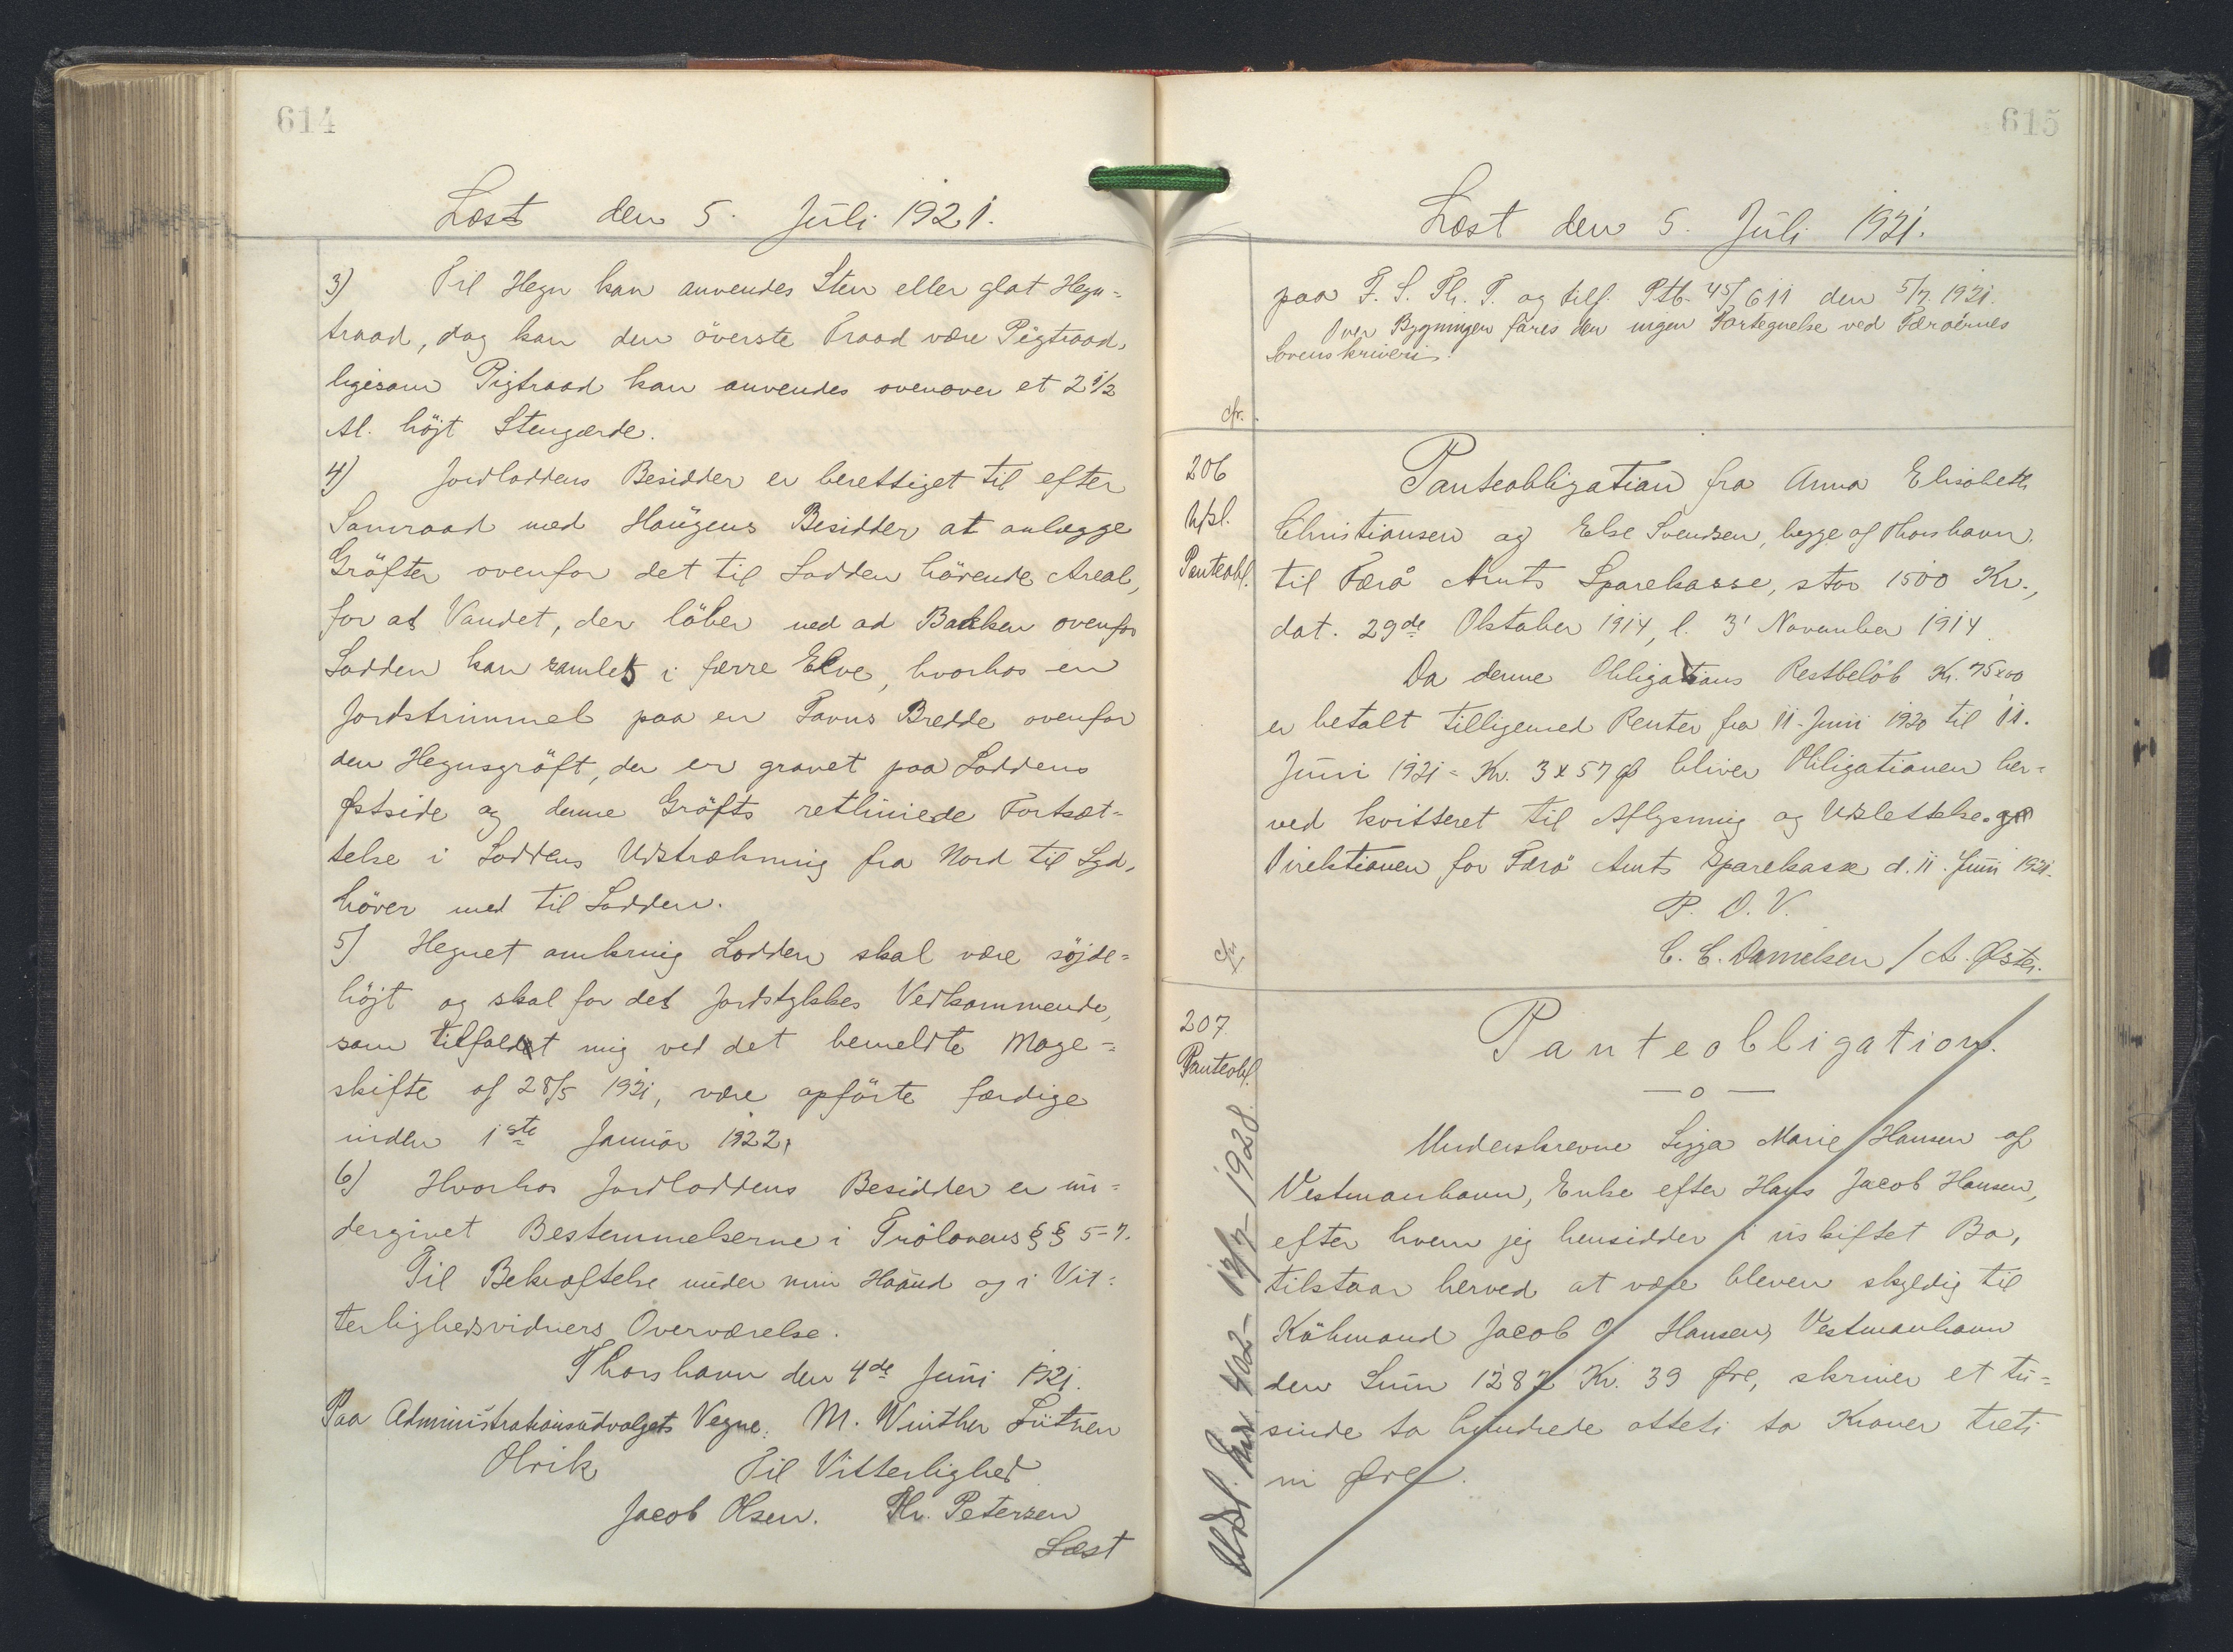 614
Læst den 5. Juli 1921.
3) Til Hegn kan anvendes Sten eller glat Hegn=
traad, dog kan den øverste Traad være Pigtraad,
ligesom Pigtraad kan anvendes ovenover et 2 1/2
Al. højt Stengærde.
4) Jordloddens Besidder er berettiget til efter
Samraad med Haugens Besidder at anlægge
Gröfter ovenfor det til Lodden hörende Areal,
for at Vandet, der löber ned ad Bakken ovenfor
Lodden kan samles i færre Elve, hvorhos en
Jordstrimmel paa en Favns Bredde ovenfor
den Hegnsgröft, der er gravet paa Loddens
Østside og denne Gröfts retliniede Fortsæt=
telse i Loddens Udstrækning fra Nord til Syd,
hörer med til Lodden.
5) Hegnet omkring Lodden skal være söjde=
höjt og skal for det Jordstykkes Vedkommende,
som tilfaldet mig ved det bemeldte Mage=
skifte af 28/5 1921, være opförte færdige
inden 1ste Januar 1922.
6) Hvorhos Jordloddens Besidder er un=
dergivet Bestemmelserne i Trölovens §§ 5-7.
Til Bekræftelse under min Haand og i Vit=
terlighedsvidners Overværelse.
Thorshavn den 4de Juni 1921.
Paa Administrationsudvalgets Vegne. M. Winther Lützen
Olrik Til Vitterlighed
Jacob Olsen. Th. Petersen
Læst
615
Læst den 5. Juli 1921.
paa F. S. Th. T. og tilf. Ptb. 45/611 den 5/7. 1921.
Over Bygningen föres der ingen Fortegnelse ved Færøernes
Sorenskriveri.
cfr.
206
Udsl.
Panteobl.
Panteobligation fra Anna Elisabeth
Christiansen og Else Svendsen, begge af Thorshavn.
til Færö Amts Sparekasse, stor 1500 Kr.,
dat. 29de Oktober 1914, l. 3' November 1914.
Da denne Obligations Restbelöb Kr. 75x00
er betalt tilligemed Renter fra 11. Juni 1920 til 11.
Juni 1921 = Kr. 3x57 Ø bliver Obligationen her=
ved kvitteret til Aflysning og Udslettelse.
Direktionen for Færö Amts Sparekasse d. 11. Juni 1921.
P. D. V.
C. C. Danielsen / A. Øster.
cfr.
207.
Panteobl.
Udsl. 402- 1928.
Panteobligation.
— o —
Underskrevne Ligga Marie Hansen af
Vestmanhavn, Enke efter Hans Jacob Hansen,
efter hvem jeg hensidder i uskiftet Bo,
tilstaar herved at være bleven skyldig til
Köbmand Jacob O. Hansen, Vestmanhavn
den Sum 1282 Kr. 39 Øre, skriver et tu=
sinde to hundrede otteti to Kroner treti
ni Øre.